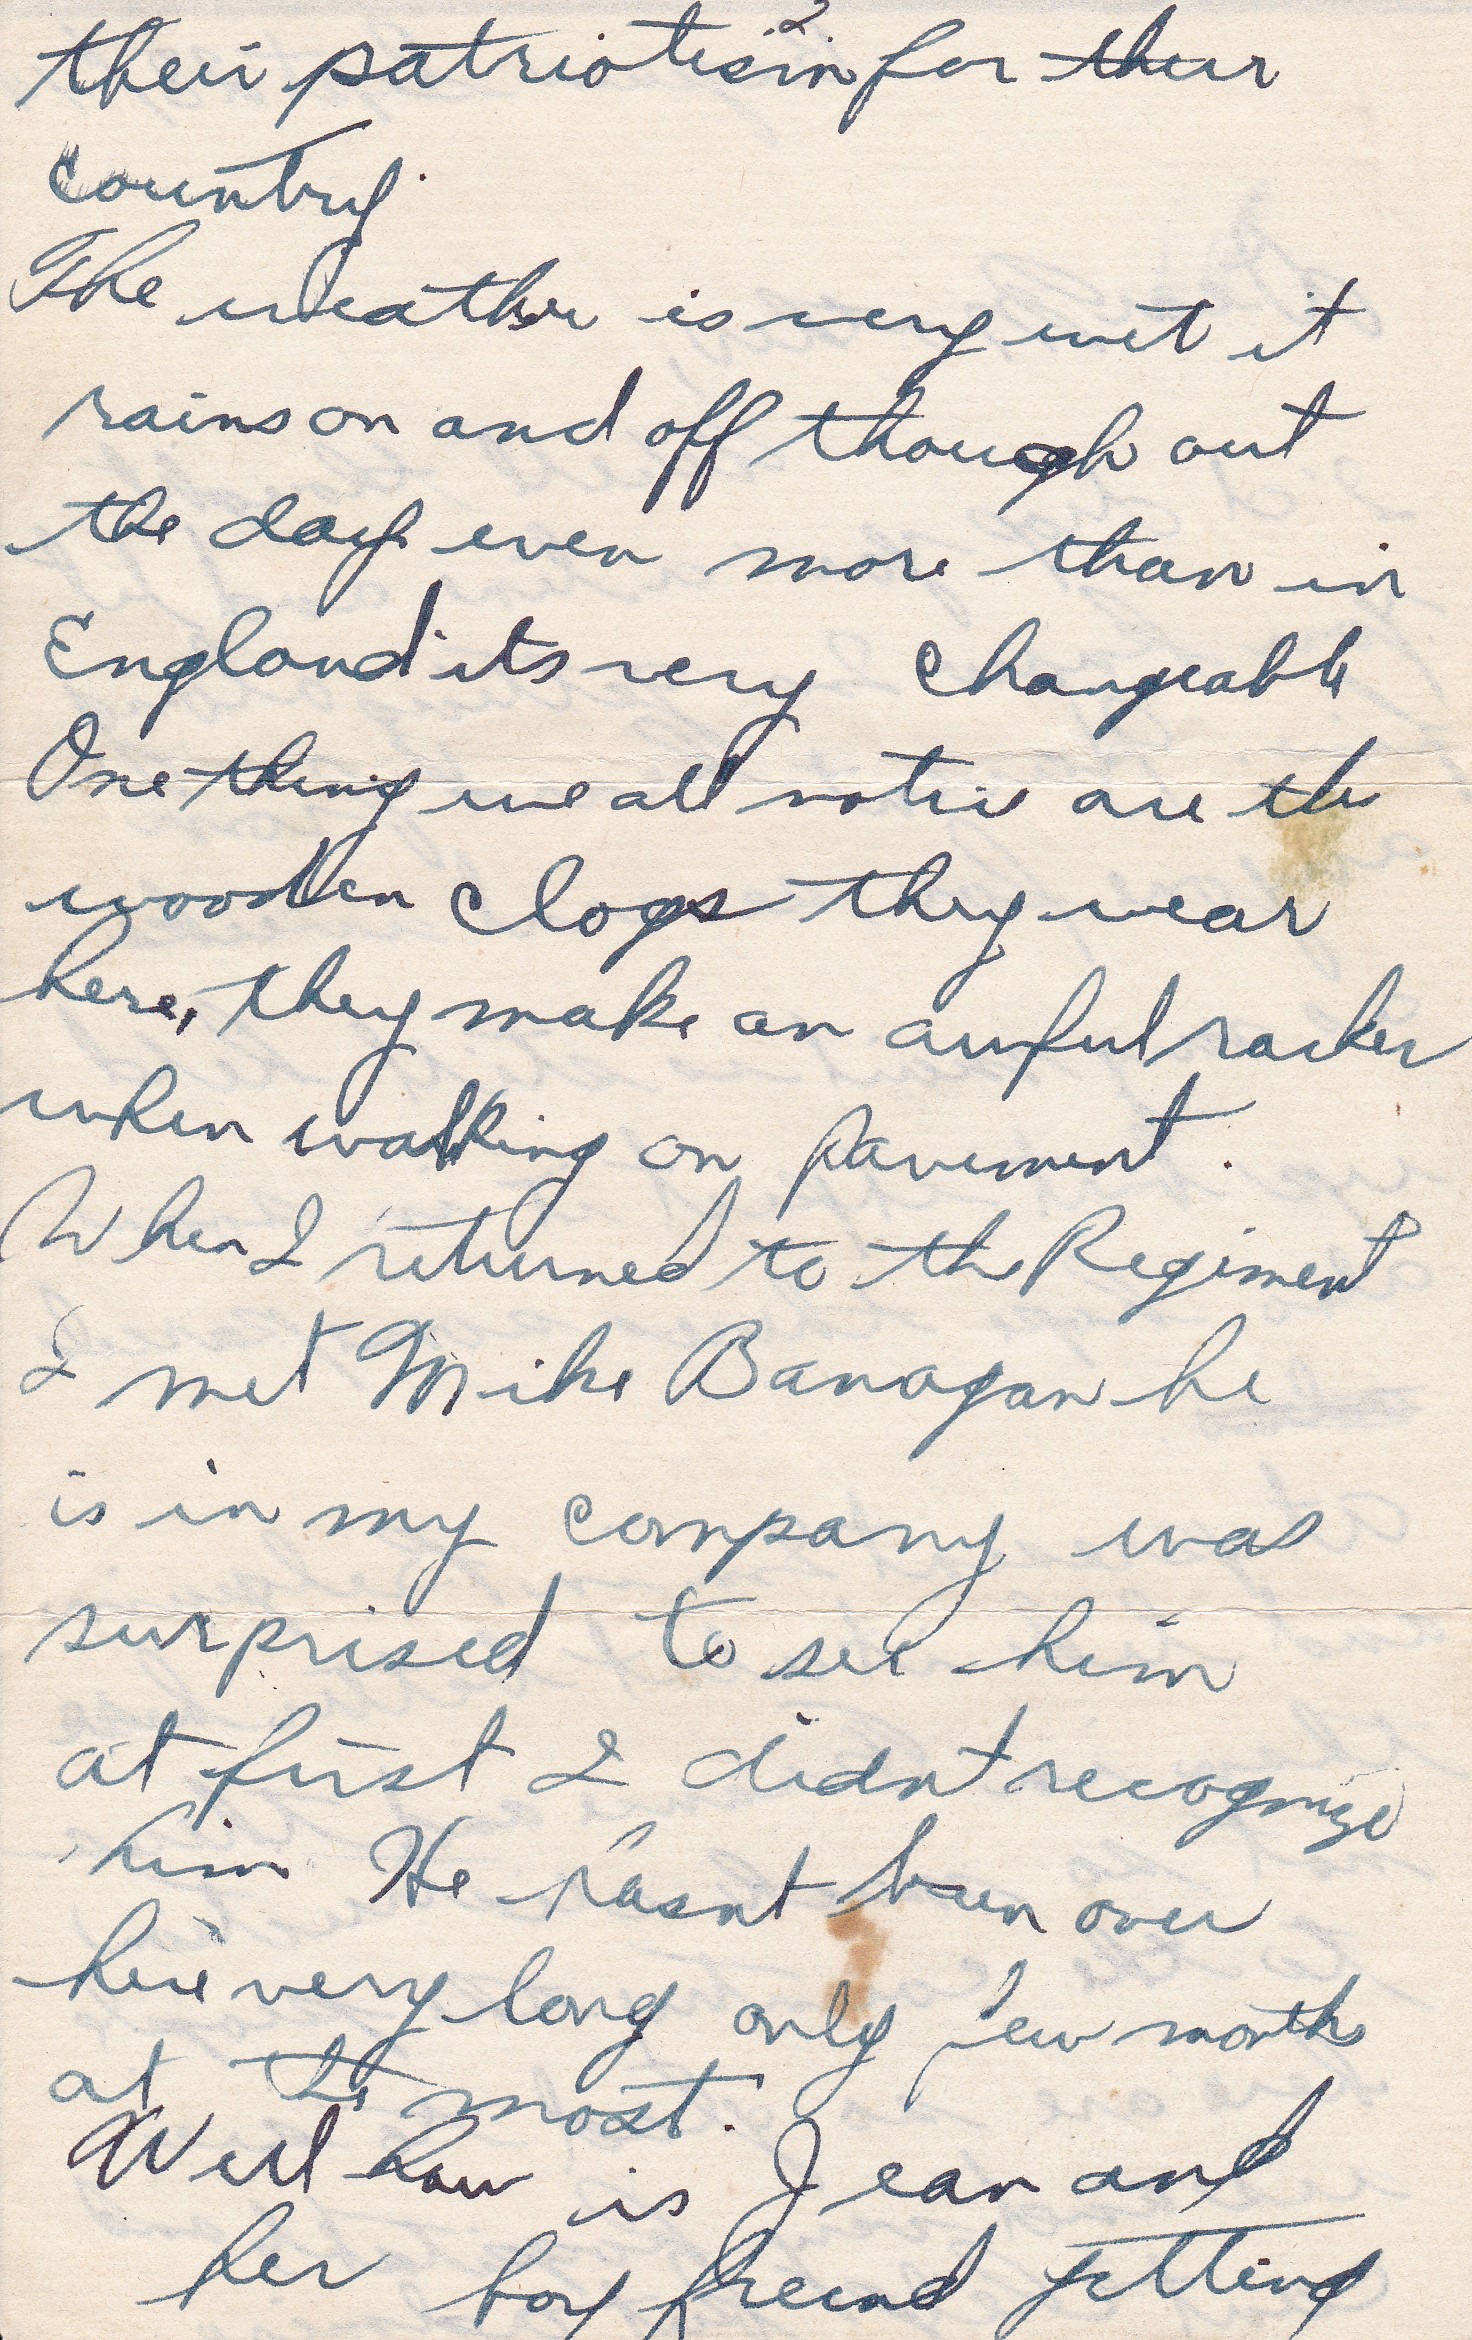 2
their patriotism for their
country.
The weather is very wet it
rains on and off though out
the day even more than in
England its very changeable
One thing we all notice are the
wooden clogs they wear
here, they make an awful racket
when walking on pavement.
When I returned to the Regiment
I met Mike Banagan he
is in my company was
surprised to see him
at first I didn't recognize
him He hasn't been over
here very long only few months
at the most.
Well how is Jean and
her boy freind getting